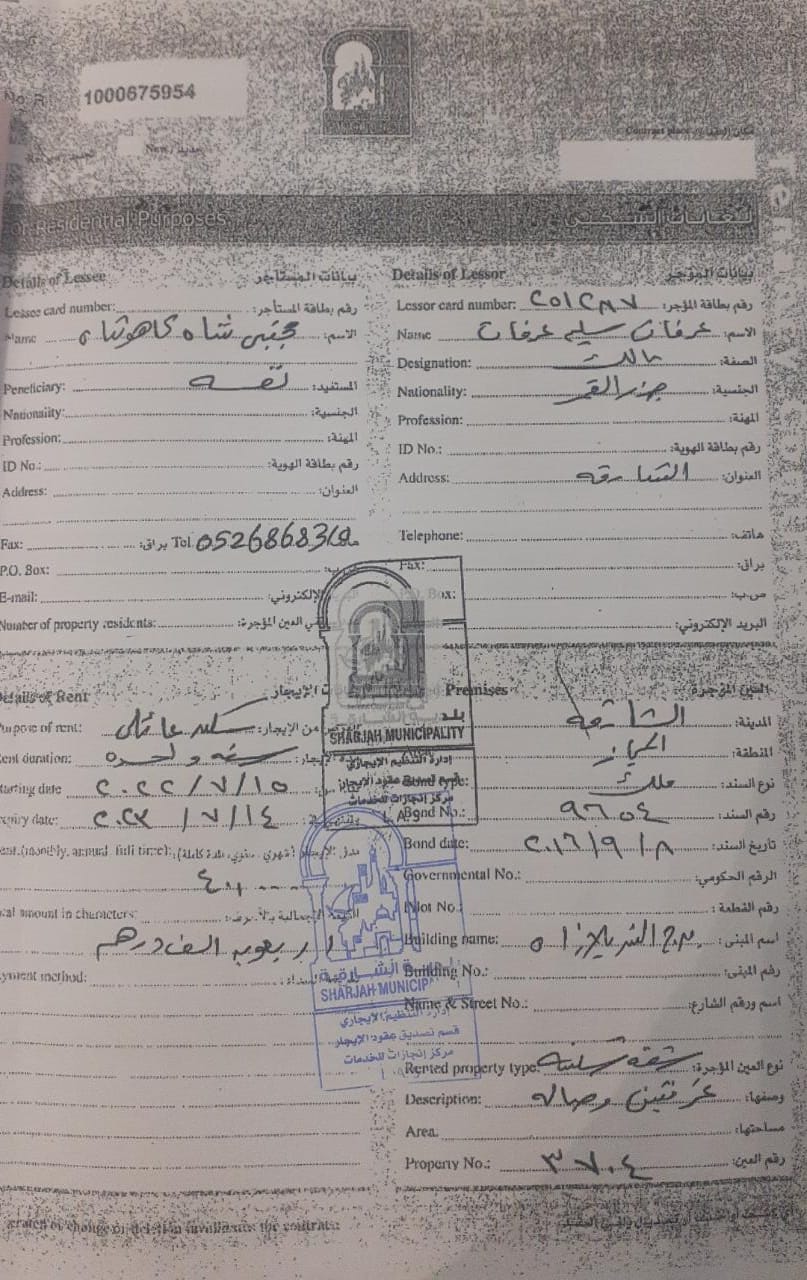 No. R
1000675954
New / جديد
Contract place
For Residential Purposes
للغايات السكني
Details of Lessee بيانات المستأجر
Lessee card number: رقم بطاقة المستأجر:
Name مجتبى شاه كاهوشاه الاسم:
Peneficiary: نفسه المستفيد:
Nationality: الجنسية:
Profession: المهنة:
ID No.: رقم بطاقة الهوية:
Address: العنوان:
Fax: براق: Tel.
P.O. Box:
E-mail: الإلكتروني:
Number of property residents: في العين المؤجرة:
Details of Lessor بيانات المؤجر
Lessor card number: رقم بطاقة المؤجر:
Name عرفات سليم عرفات الاسم:
Designation: مالك الصفة:
Nationality: جزر القمر الجنسية:
Profession: المهنة:
ID No.: رقم بطاقة الهوية:
Address: الشارقه العنوان:
Telephone: هاتف:
Fax: براق:
Box: ص.ب:
البريد الإلكتروني:
Details of Rent الإيجار
Purpose of rent: سكن عائلي من الإيجار:
Rent duration: سنه واحده الإيجار:
Starting date ٢٠٢٢/٧/١٥
Expiry date: ٢٠٢٣/٧/١٤
Rent (monthly, annual, full time): (شهري، سنوي، مدة كاملة):
Total amount in characters: القيمة الإجمالية بالأحرف:
اربعون الف درهم
Payment method:
Premises العين المؤجرة
الشارقه المدينة:
المنطقة:
Bond type: ملك نوع السند:
Bond No.: ٩٦٥٤ رقم السند:
Bond date: ٢٠١٦/٩/٨ تاريخ السند:
Governmental No.: الرقم الحكومي:
Plot No. رقم القطعة:
Building name: برج اسم المبنى:
Building No.: رقم المبنى:
Name & Street No.: اسم ورقم الشارع:
Rented property type: شقة سكنيه نوع العين المؤجرة:
Description: غرفتين وصاله وصفها:
Area: مساحتها:
Property No.: ٣٧٠٤ رقم العين:
SHARJAH MUNICIPALITY
إدارة التنظيم الإيجاري
قسم تصديق عقود الإيجار
مركز إنجازات للخدمات
SHARJAH MUNICIP
إدارة التنظيم الإيجاري
قسم تصديق عقود الإيجار
مركز إنجازات للخدمات